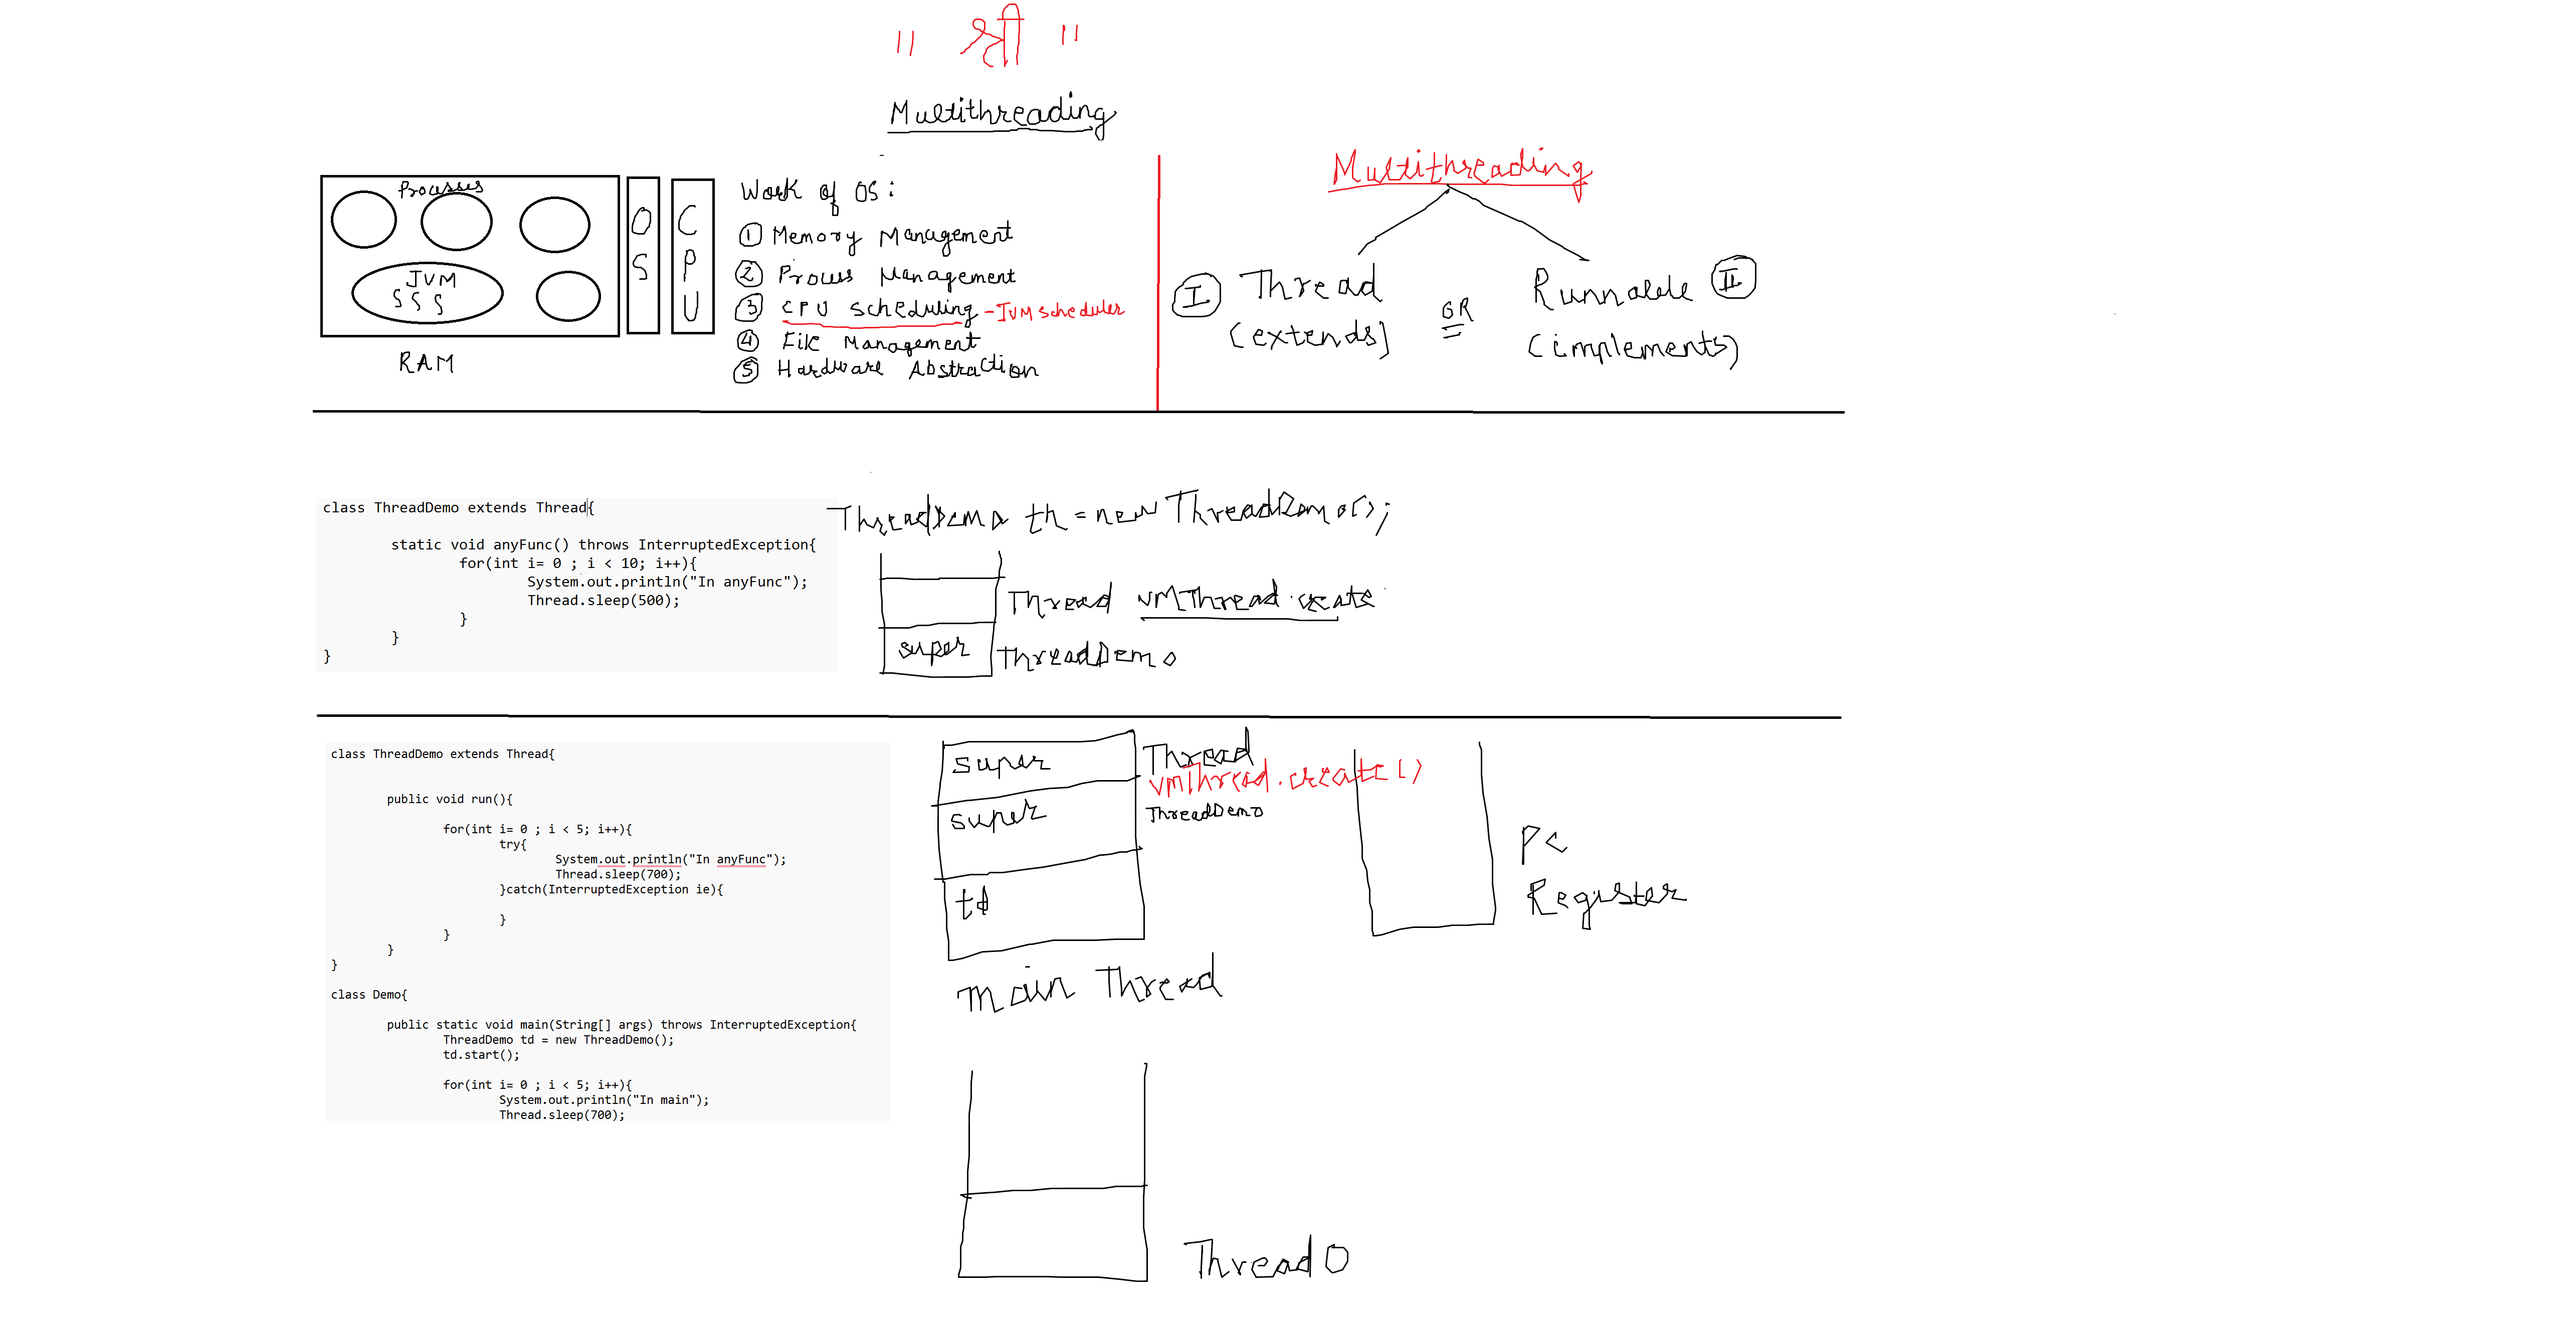 " श्री "
Multithreading
Processes
JVM
RAM
OS
CPU
Work of OS:
① Memory Management
② Process Management
③ CPU scheduling - JVM scheduler
④ File Management
⑤ Hardware Abstraction
Multithreading
I Thread
(extends)
OR
Runnable II
(implements)
class ThreadDemo extends Thread{
static void anyFunc() throws InterruptedException{
for(int i= 0 ; i < 10; i++){
System.out.println("In anyFunc");
Thread.sleep(500);
}
}
}
ThreadDemo th = new ThreadDemo();
Thread vmThread.create
super ThreadDemo
class ThreadDemo extends Thread{
public void run(){
for(int i= 0 ; i < 5; i++){
try{
System.out.println("In anyFunc");
Thread.sleep(700);
}catch(InterruptedException ie){
}
}
}
}
class Demo{
public static void main(String[] args) throws InterruptedException{
ThreadDemo td = new ThreadDemo();
td.start();
for(int i= 0 ; i < 5; i++){
System.out.println("In main");
Thread.sleep(700);
super Thread
vmThread.create()
super ThreadDemo
td
main Thread
PC
Register
Thread 0